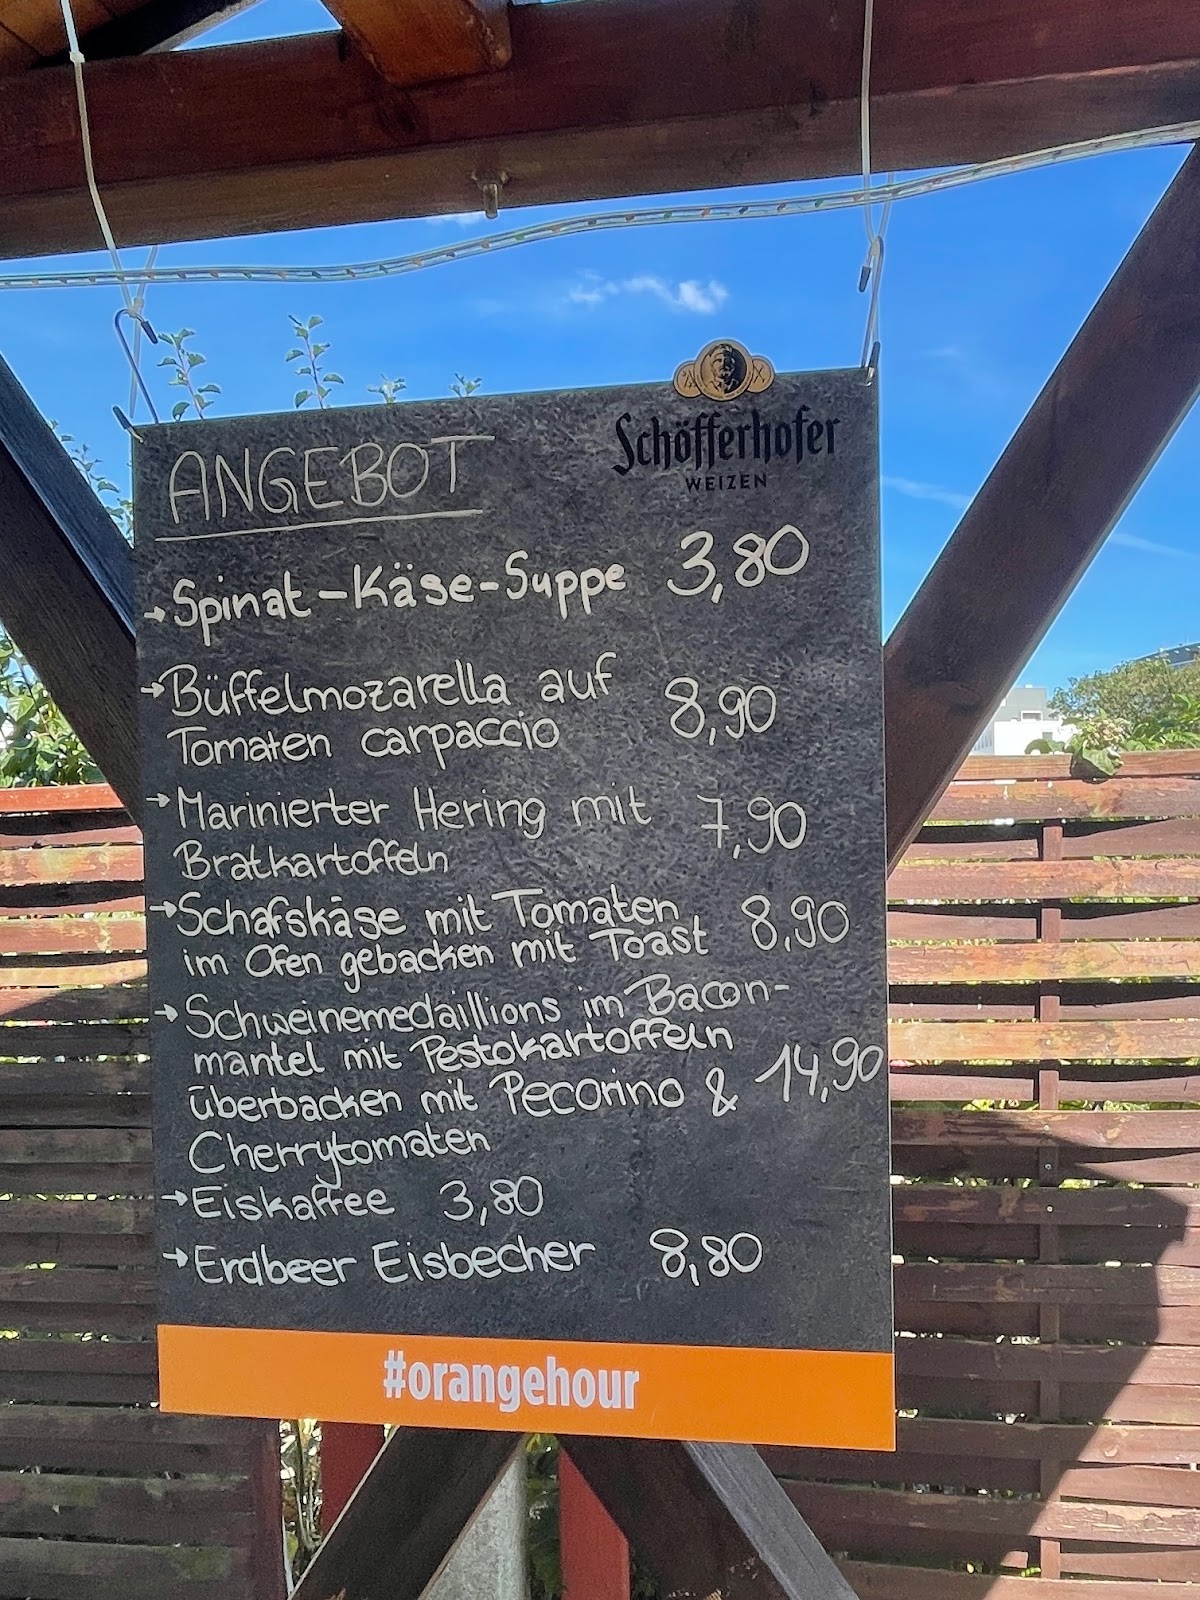 Schöfferhofer
WEIZEN
ANGEBOT
→ Spinat-Käse-Suppe 3,80
→ Büffelmozarella auf
Tomaten carpaccio 8,90
→ Marinierter Hering mit 7,90
Bratkartoffeln
→ Schafskäse mit Tomaten
im Ofen gebacken mit Toast 8,90
→ Schweinemedaillions im Bacon-
mantel mit Pestokartoffeln
überbacken mit Pecorino & 14,90
Cherrytomaten
→ Eiskaffee 3,80
→ Erdbeer Eisbecher 8,80
#orangehour